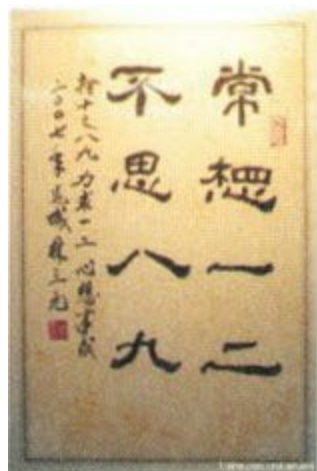 常想一二
不思八九
十之八九力求一二心想事成
二〇〇七年